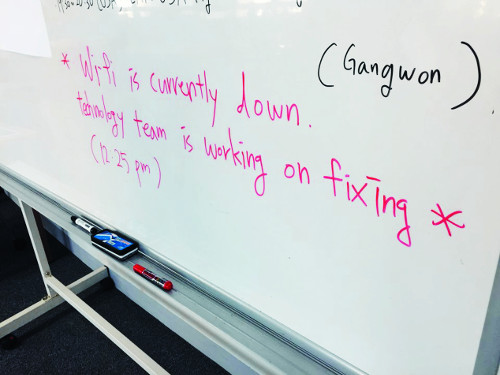 (Gangwon)
* Wi-fi is currently down.
technology team is working on fixing *
(12:25 pm)